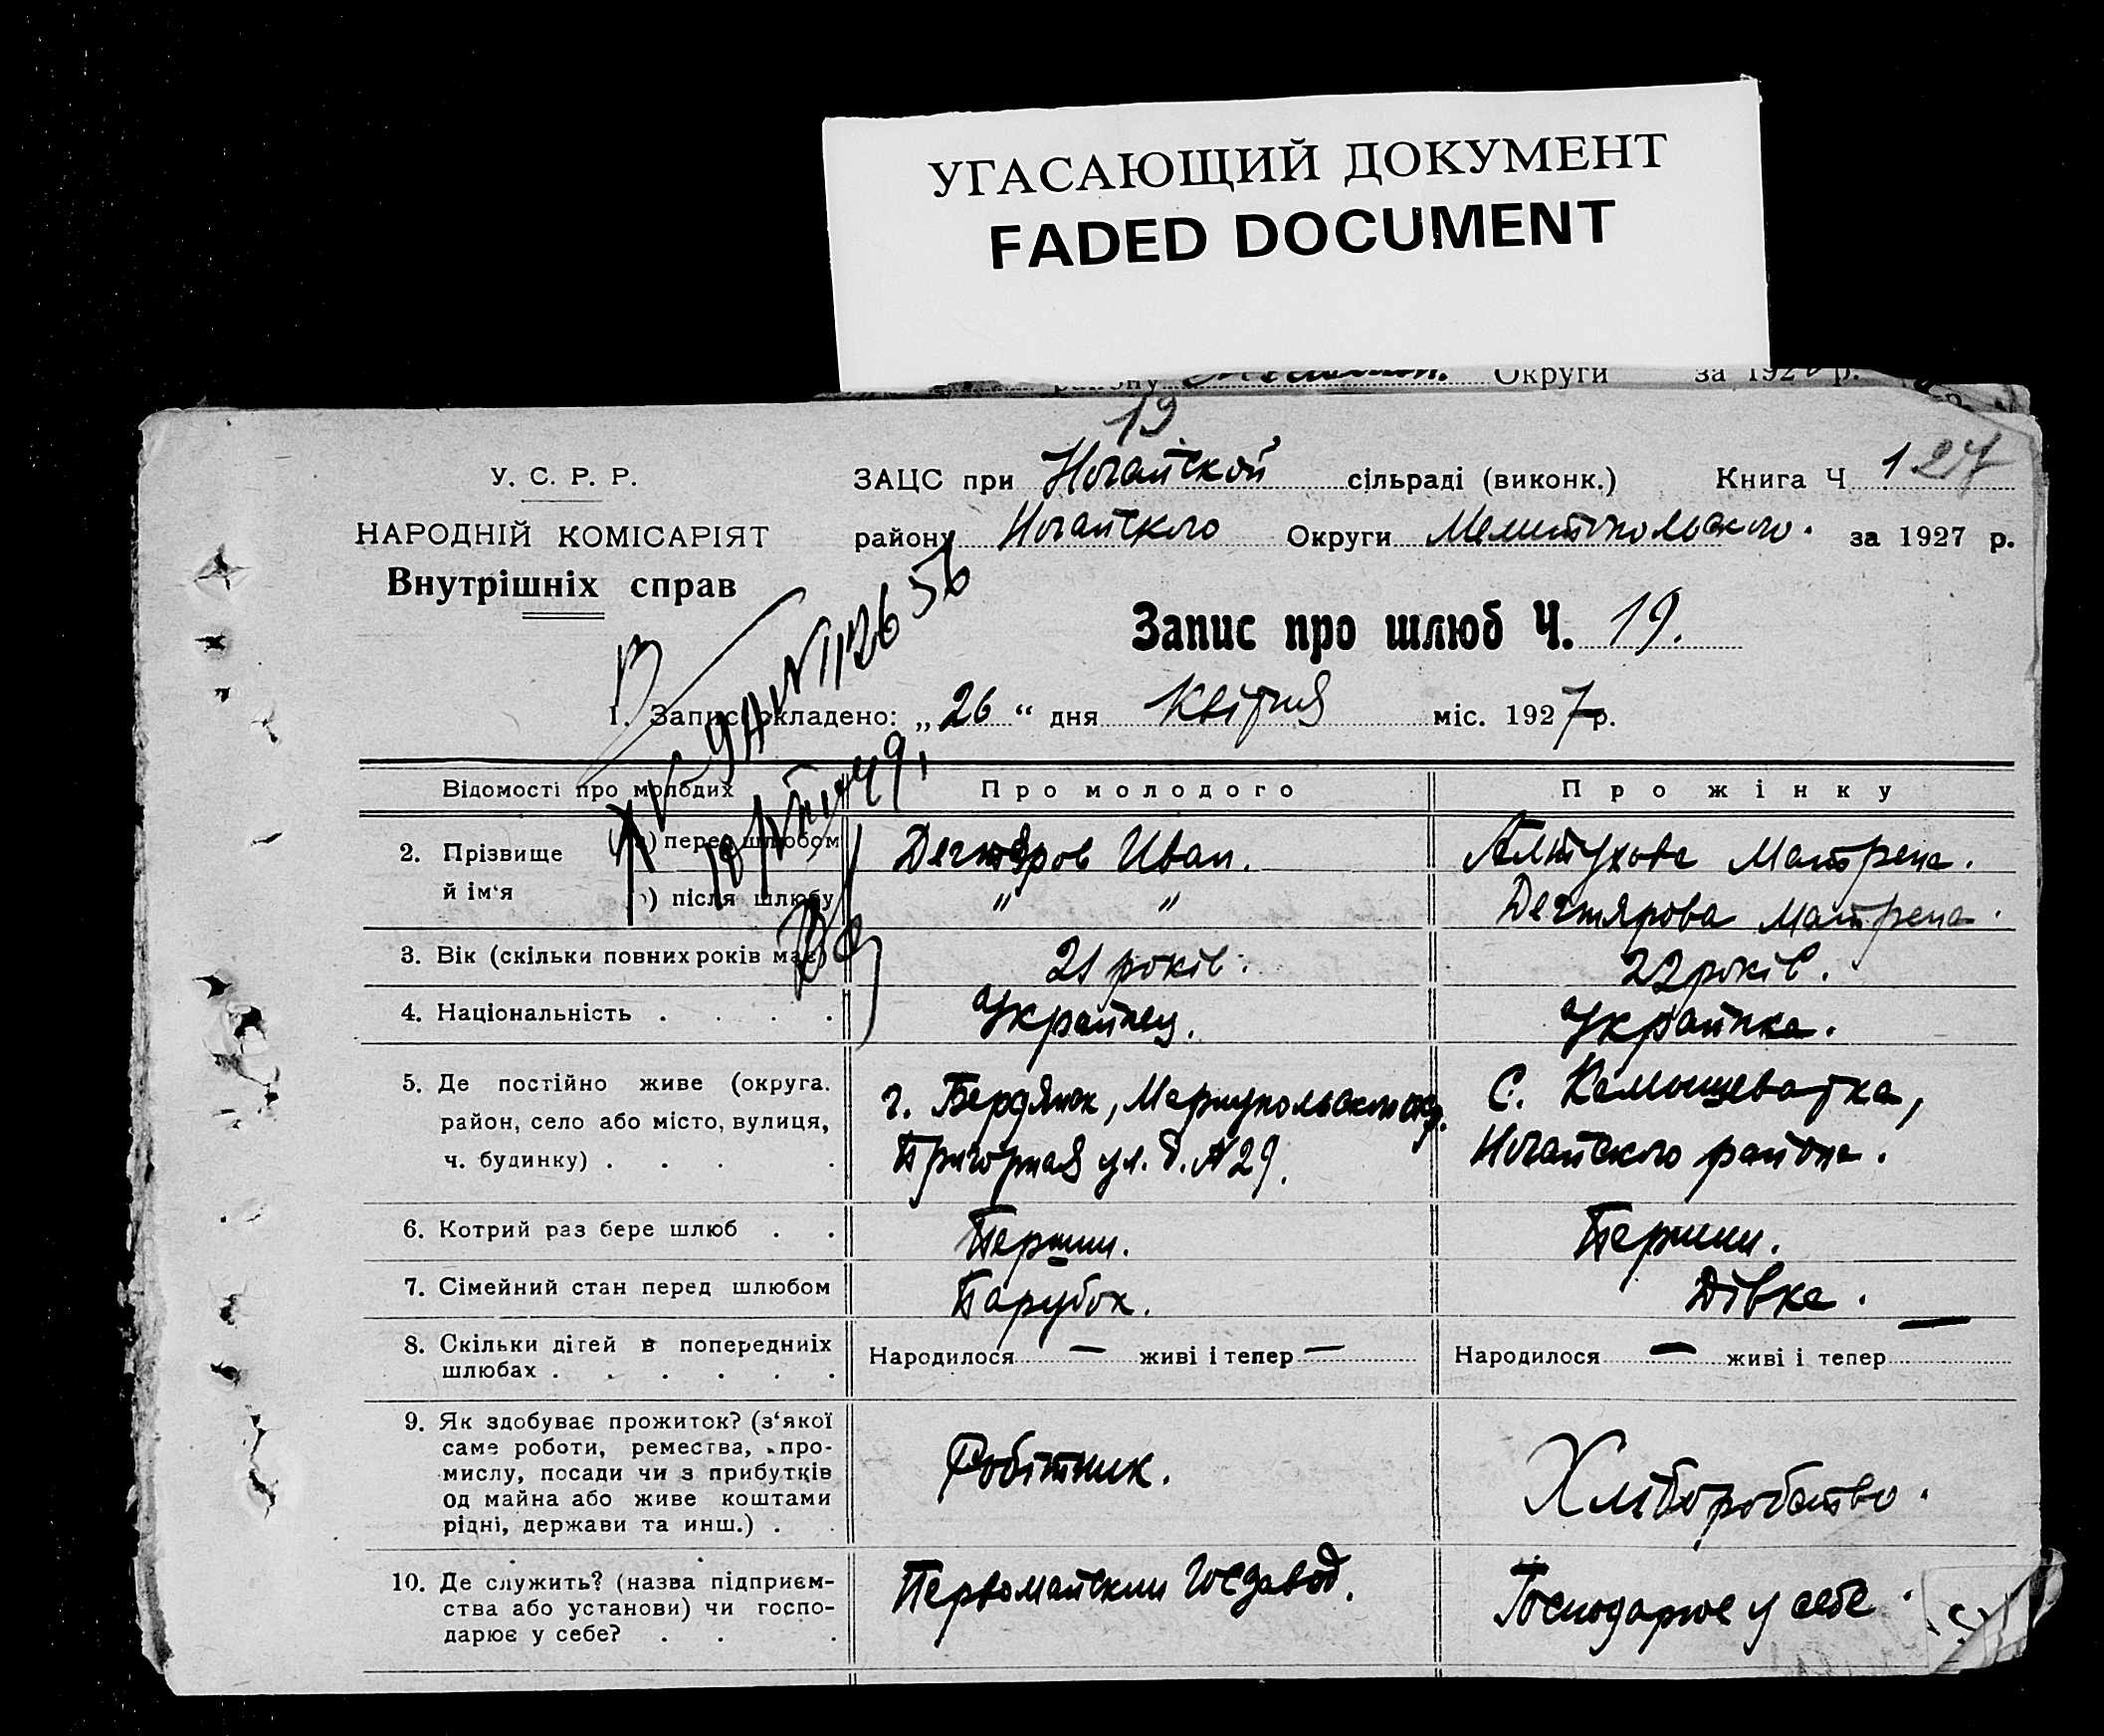 УГАСАЮЩИЙ ДОКУМЕНТ
FADED DOCUMENT
району Округи за 192 р.
19
У. С. Р. Р.
ЗАЦС при Ногайской сільраді (виконк.) Книга Ч 1 27
НАРОДНІЙ КОМІСАРІЯТ
району Ногайского Округи Мелитопольского. за 1927 р.
Внутрішніх справ
Запис про шлюб Ч. 19.
1. Запис складено: „26“ дня Квітня міс. 1927 р.
Відомості про молодих
Про молодого
Про жінку
2. Прізвище й ім‘я
а) перед шлюбом
Дегтяров Иван.
Алтухова Матрена.
б) після шлюбу
" "
Дегтярова Матрена.
3. Вік (скільки повних років має)
21 років.
22 років.
4. Національність . . . .
Украйнец.
Украйнка.
5. Де постійно живе (округа.
район, село або місто, вулиця,
ч. будинку) . . . .
г. Бердянск, Мариупольского окр.
Пригорная ул. д. № 29.
С. Камышеватка,
Ногайского района.
6. Котрий раз бере шлюб . .
Перший.
Перший.
7. Сімейний стан перед шлюбом
Парубок.
Дівка.
8. Скільки дітей в попередниіх
шлюбах . . . . . .
Народилося — живі і тепер —
Народилося — живі і тепер —
9. Як здобуває прожиток? (з‘якої
саме роботи, ремества, про-
мислу, посади чи з прибутків
од майна або живе коштами
рідні, держави та инш.) . .
Робітник.
Хліборобство.
10. Де служить? (назва підприєм-
ства або установи) чи госпо-
дарює у себе? . . .
Первомайский Госзавод.
Господарює у себе.